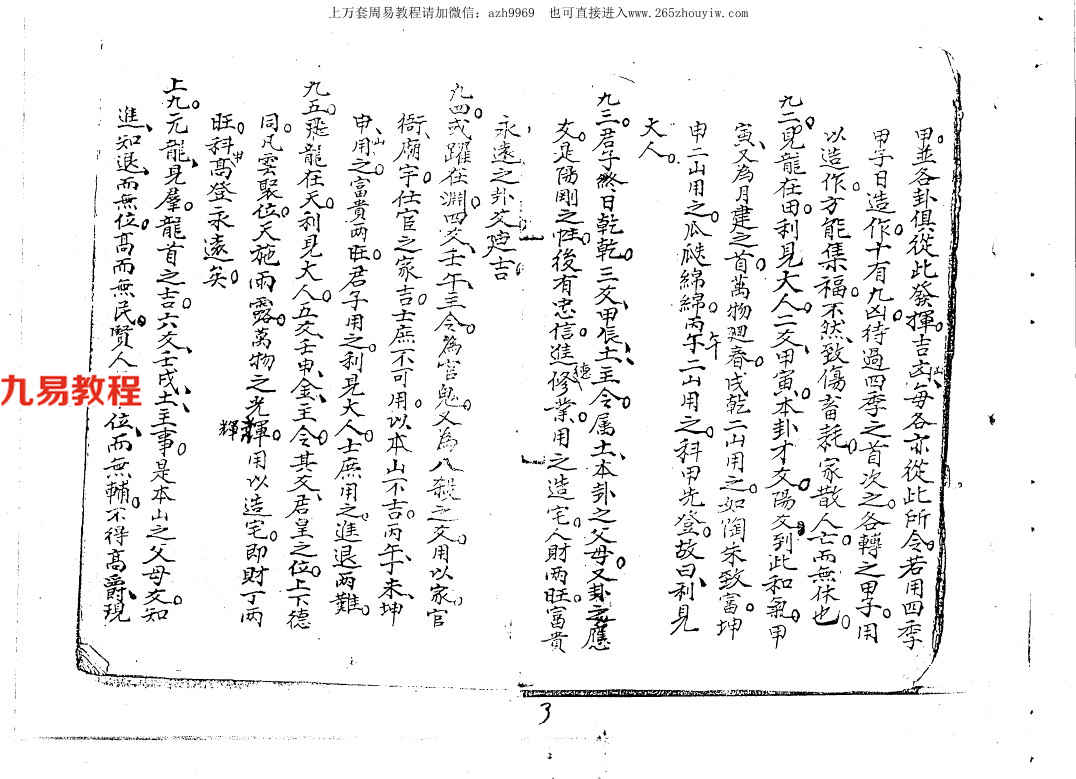 上万套周易教程请加微信：azh9969　也可直接进入www.265zhouyiw.com
甲並各卦俱從此發揮吉凶山每各亦從此所令若用四季
甲子日造作十有九凶待過四季之首次之各轉之甲子用
以造作方能集福不然致傷畜耗家散人亡而無休也
九二見龍在田利見大人二爻甲寅本卦才爻陽爻到此和氣甲
寅又為月建之首萬物迴春戌乾二山用之如陶朱致富坤
申二山用之瓜瓞綿綿丙午二山用之科甲先登故曰利見
大人
九三君子終日乾乾三爻甲辰土主令属土本卦之父母又卦之應
爻是陽剛之性後有忠信進德修業用之造宅人財兩旺富貴
永遠之卦爻迪吉
九四或躍在淵四爻壬午主令為官鬼又為八殺之爻用以家官
衙廟宇任官之家吉士庶不可用以本山不吉丙午未坤
申山用之富貴两旺君子用之利見大人士庶用之進退两難
九五飛龍在天利見大人五爻壬申金主令其爻君皇之位上下德
同凡雲聚位天施雨露萬物之光輝用以造宅即財丁两
旺科甲高登永遠矣
上九元龍見羣龍首之吉六爻壬戌土主事是本山之父母爻知
進知退而無位高而無民賢人位而無輔不得高爵現
九易教程
3